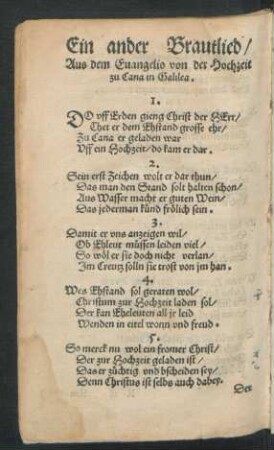 Ein ander Brautlied/
Aus dem Euangelio von der Hochzeit
zu Cana in Galilea.
1.
DO vff Erden gieng Christ der HErr/
Thet er dem Ehstand grosse ehr/
Zu Cana er geladen war
Vff ein Hochzeit/ do kam er dar.
2.
Sein erst Zeichen wolt er dar thun/
Das man den Stand solt halten schon/
Aus Wasser macht er guten Wein/
Das jederman künd frölich sein.
3.
Damit er vns anzeigen wil/
Ob Ehleut müssen leiden viel/
So wöl er sie doch nicht verlan/
Im Creutz solln sie trost von jm han.
4.
Wes Ehstand sol geraten wol/
Christum zur Hochzeit laden sol/
Der kan Eheleuten all jr leid
Wenden in eitel wonn vnd freud.
5.
So merck nu wol ein fromer Christ/
Der zur Hochzeit geladen ist/
Das er züchtig vnd bscheiden sey/
Denn Christus ist selbs auch dabey.
Der